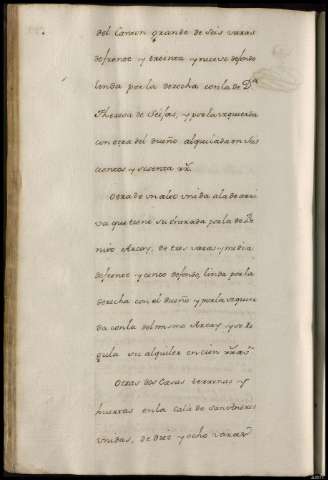 del Canton grande de seis varas
de frente y treinta y nueve de fondo
linda por la derecha con la de D.ª
Theresa de Seijas, y por la izquierda
con otra del dueño alquilada en seis
cientos y sesenta rr.
Otra de un alto unida a la de arri
va que tiene su entrada por la de Be
nito Arcay, de tres varas y media
de frente y cinco de fondo, linda por la
derecha con el dueño y por la izquier
da con la del mismo Arcay, y se re
gula su alquiler en cien rr.s
Otras dos Casas terrenas y
huertas en la calle de San Andres
unidas, de diez y ocho varas